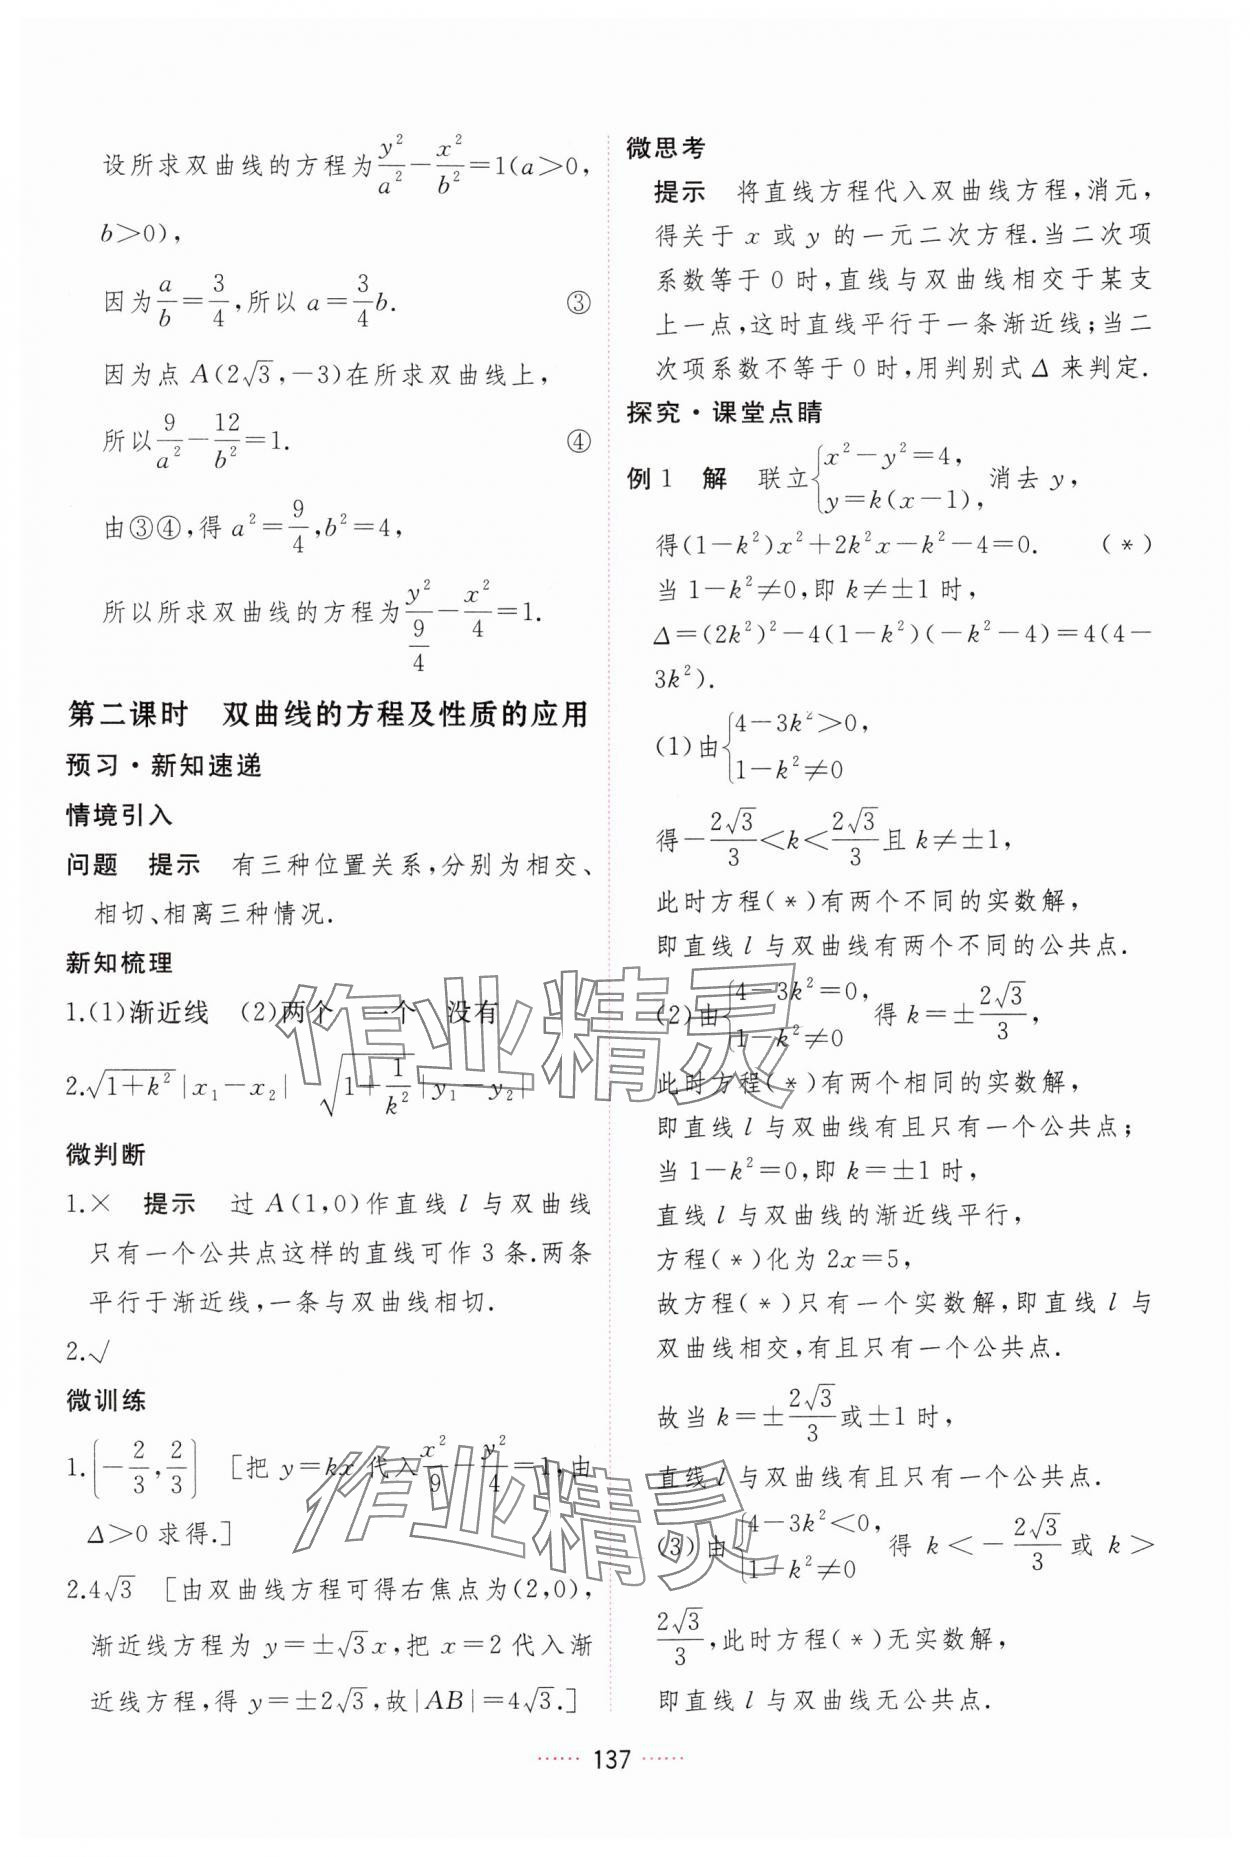 设所求双曲线的方程为y²/a²－x²/b²＝1(a＞0,
b＞0),
因为a/b＝3/4,所以 a＝3/4b. ③
因为点 A(2√3,－3)在所求双曲线上,
所以9/a²－12/b²＝1. ④
由③④,得 a²＝9/4,b²＝4,
所以所求双曲线的方程为y²/(9/4)－x²/4＝1.
第二课时 双曲线的方程及性质的应用
预习·新知速递
情境引入
问题 提示 有三种位置关系,分别为相交、
相切、相离三种情况.
新知梳理
1.(1)渐近线 (2)两个 一个 没有
2.√(1＋k²)|x₁－x₂| √(1＋1/k²)|y₁－y₂|
微判断
1.× 提示 过 A(1,0)作直线 l 与双曲线
只有一个公共点这样的直线可作 3 条.两条
平行于渐近线,一条与双曲线相切.
2.√
微训练
1.(－2/3,2/3) [把 y＝kx 代入x²/9－y²/4＝1,由
Δ＞0 求得.]
2.4√3 [由双曲线方程可得右焦点为(2,0),
渐近线方程为 y＝±√3x,把 x＝2 代入渐
近线方程,得 y＝±2√3,故|AB|＝4√3.]
微思考
提示 将直线方程代入双曲线方程,消元,
得关于 x 或 y 的一元二次方程.当二次项
系数等于 0 时,直线与双曲线相交于某支
上一点,这时直线平行于一条渐近线;当二
次项系数不等于 0 时,用判别式 Δ 来判定.
探究·课堂点睛
例 1 解 联立{x²－y²＝4, y＝k(x－1), 消去 y,
得(1－k²)x²＋2k²x－k²－4＝0. (*)
当 1－k²≠0,即 k≠±1 时,
Δ＝(2k²)²－4(1－k²)(－k²－4)＝4(4－
3k²).
(1)由{4－3k²＞0, 1－k²≠0
得－2√3/3＜k＜2√3/3且 k≠±1,
此时方程(*)有两个不同的实数解,
即直线 l 与双曲线有两个不同的公共点.
(2)由{4－3k²＝0, 1－k²≠0 得 k＝±2√3/3,
此时方程(*)有两个相同的实数解,
即直线 l 与双曲线有且只有一个公共点;
当 1－k²＝0,即 k＝±1 时,
直线 l 与双曲线的渐近线平行,
方程(*)化为 2x＝5,
故方程(*)只有一个实数解,即直线 l 与
双曲线相交,有且只有一个公共点.
故当 k＝±2√3/3或±1 时,
直线 l 与双曲线有且只有一个公共点.
(3)由{4－3k²＜0, 1－k²≠0 得 k＜－2√3/3 或 k＞
2√3/3,此时方程(*)无实数解,
即直线 l 与双曲线无公共点.
137
作业精灵
作业精灵